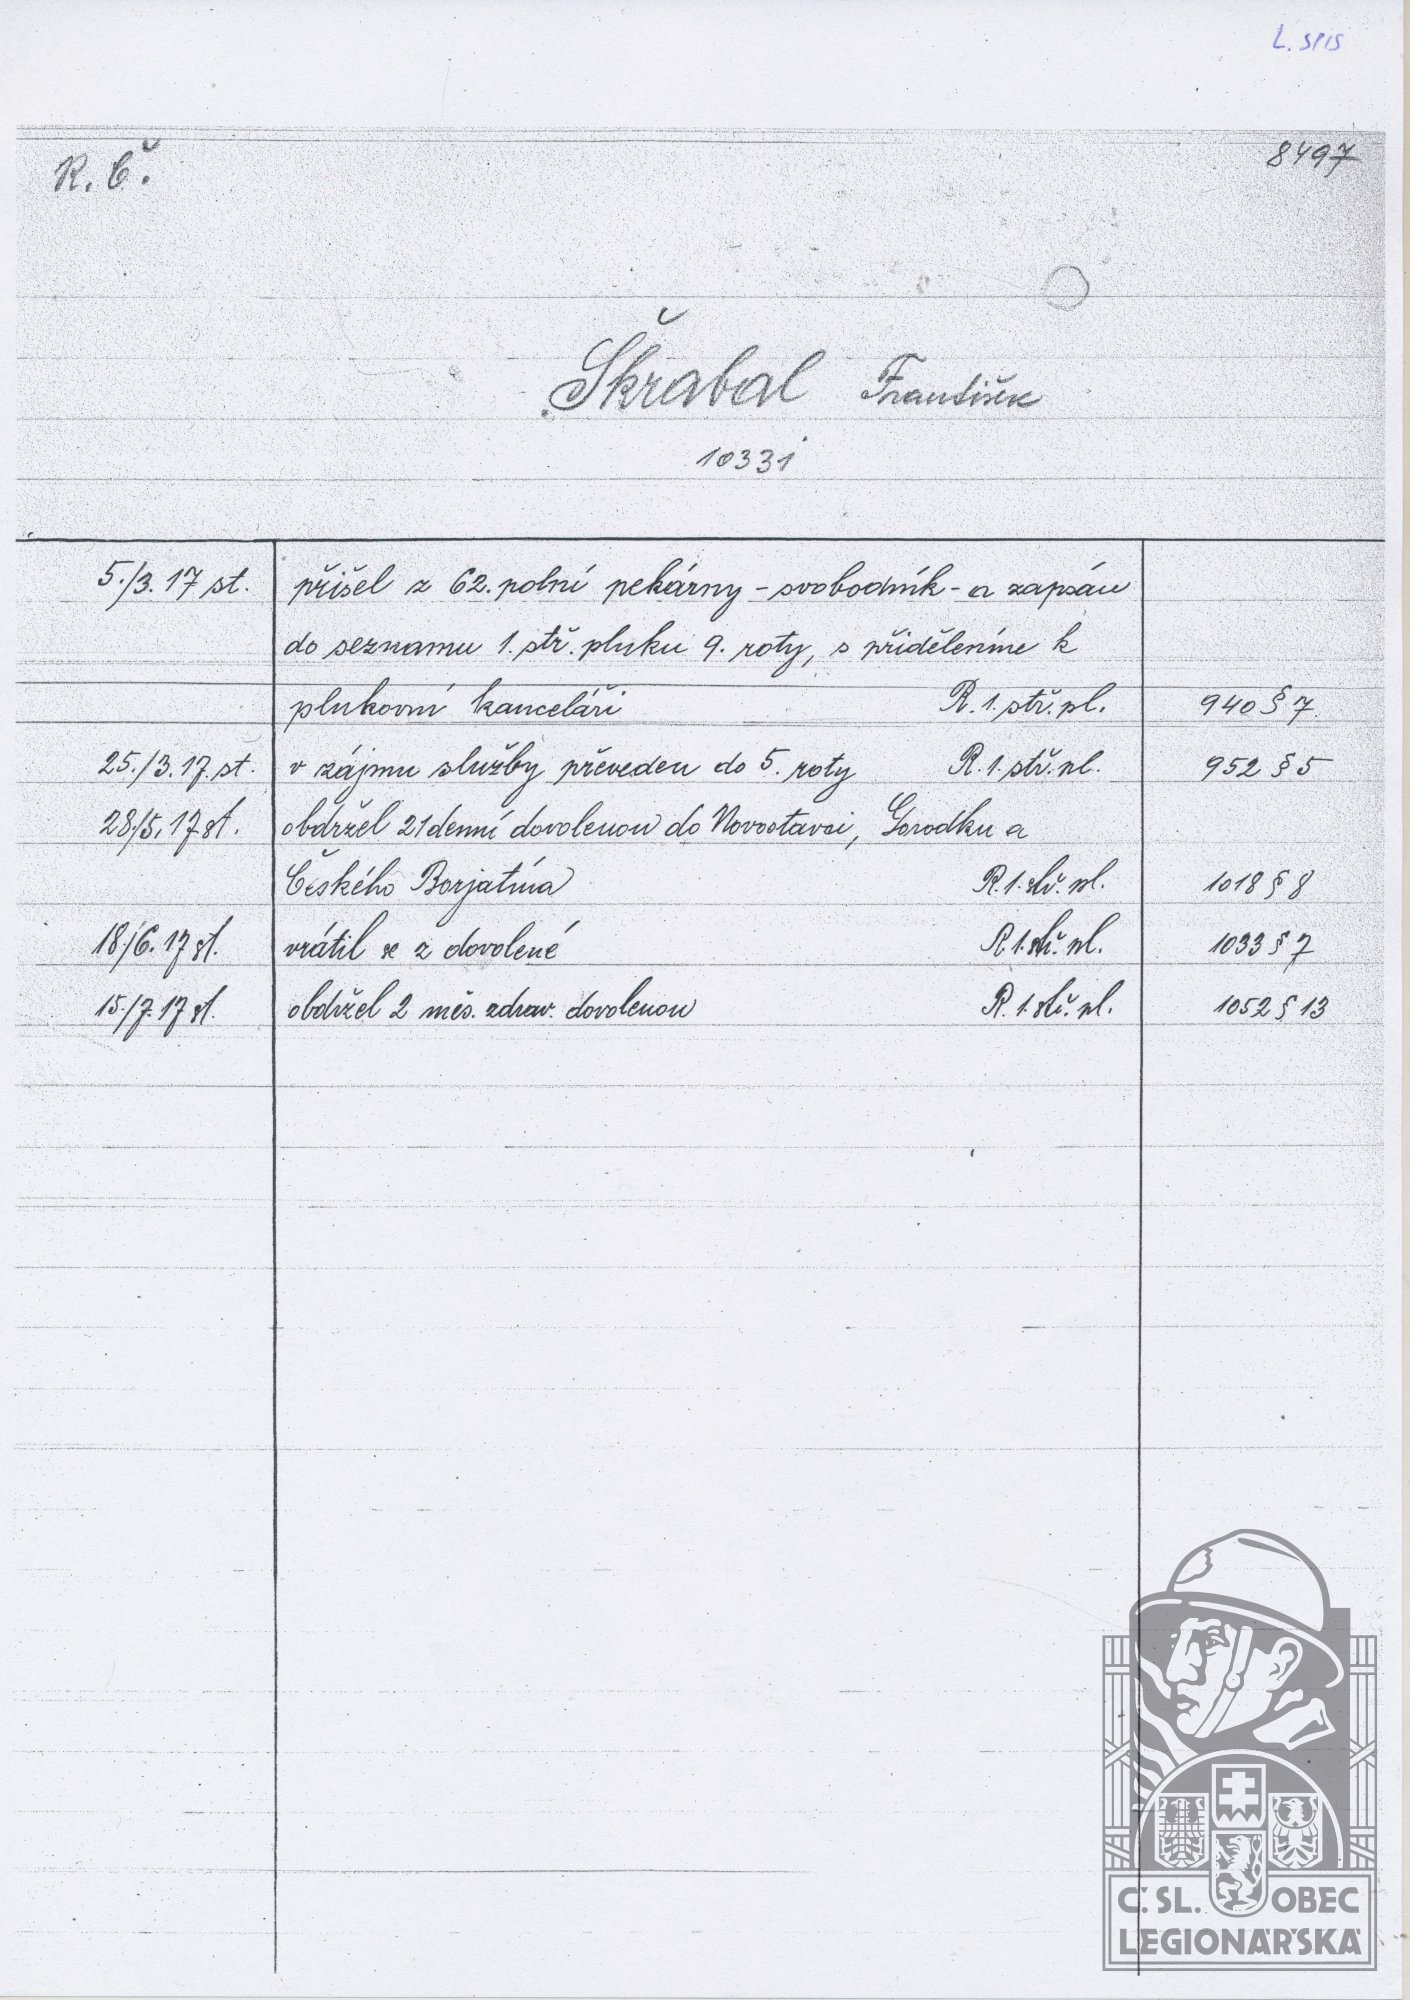 L. spis
R. Č.
8497
Škrabal František
10331
5./3.17 st. přišel z 62. polní pekárny - svobodník - a zapsán
do seznamu 1. stř. pluku 9. roty, s přidělením k
plukovní kanceláři R. 1. stř. pl. 940 § 7
25./3.17. st. v zájmu služby převeden do 5. roty R. 1. stř. pl. 952 § 5
28./5.17 st. obdržel 21denní dovolenou do Novostavci, Gorodku a
Českého Borjatína R. 1. stř. pl. 1018 § 8
18./6.17 st. vrátil se z dovolené R. 1. stř. pl. 1033 § 7
15./7.17 st. obdržel 2 měs. zdrav. dovolenou R. 1. stř. pl. 1052 § 13
Č. SL. OBEC
LEGIONÁŘSKÁ